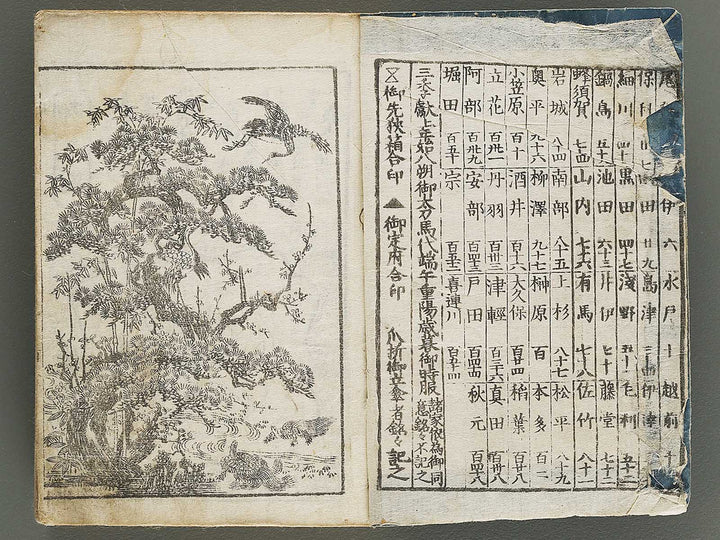 尾 伊 六 水戸 十 越前 十
保 廿七 田 廿九 島津 伊達
細川 四十 黒田 四十七 浅野 五十 毛利 五十二
鍋島 池田 六十三 井伊 七十 藤堂 七十二
蜂須賀 七十四 山内 七十六 有馬 七十八 佐竹 八十一
岩城 八十四 南部 八十五 上杉 八十七 松平 八十九
奥平 九十六 柳澤 九十七 榊原 百 本多 百二
小笠原 百十 酒井 百十六 大久保 百廿四 稲葉 百廿八
立花 百卅一 丹羽 百卅三 津輕 百三十六 真田 百卅八
阿部 百卅九 安部 百四三 戸田 百四四 秋元 百四八
堀田 百五十 宗 百五三 喜連川 百五十四
三季献上并如八朔御太刀馬代端午重陽歳暮御時服 諸家依為御同意銘々不記之
御先狭箱合印 ▲御定府合印 爪折御立傘者銘々記之